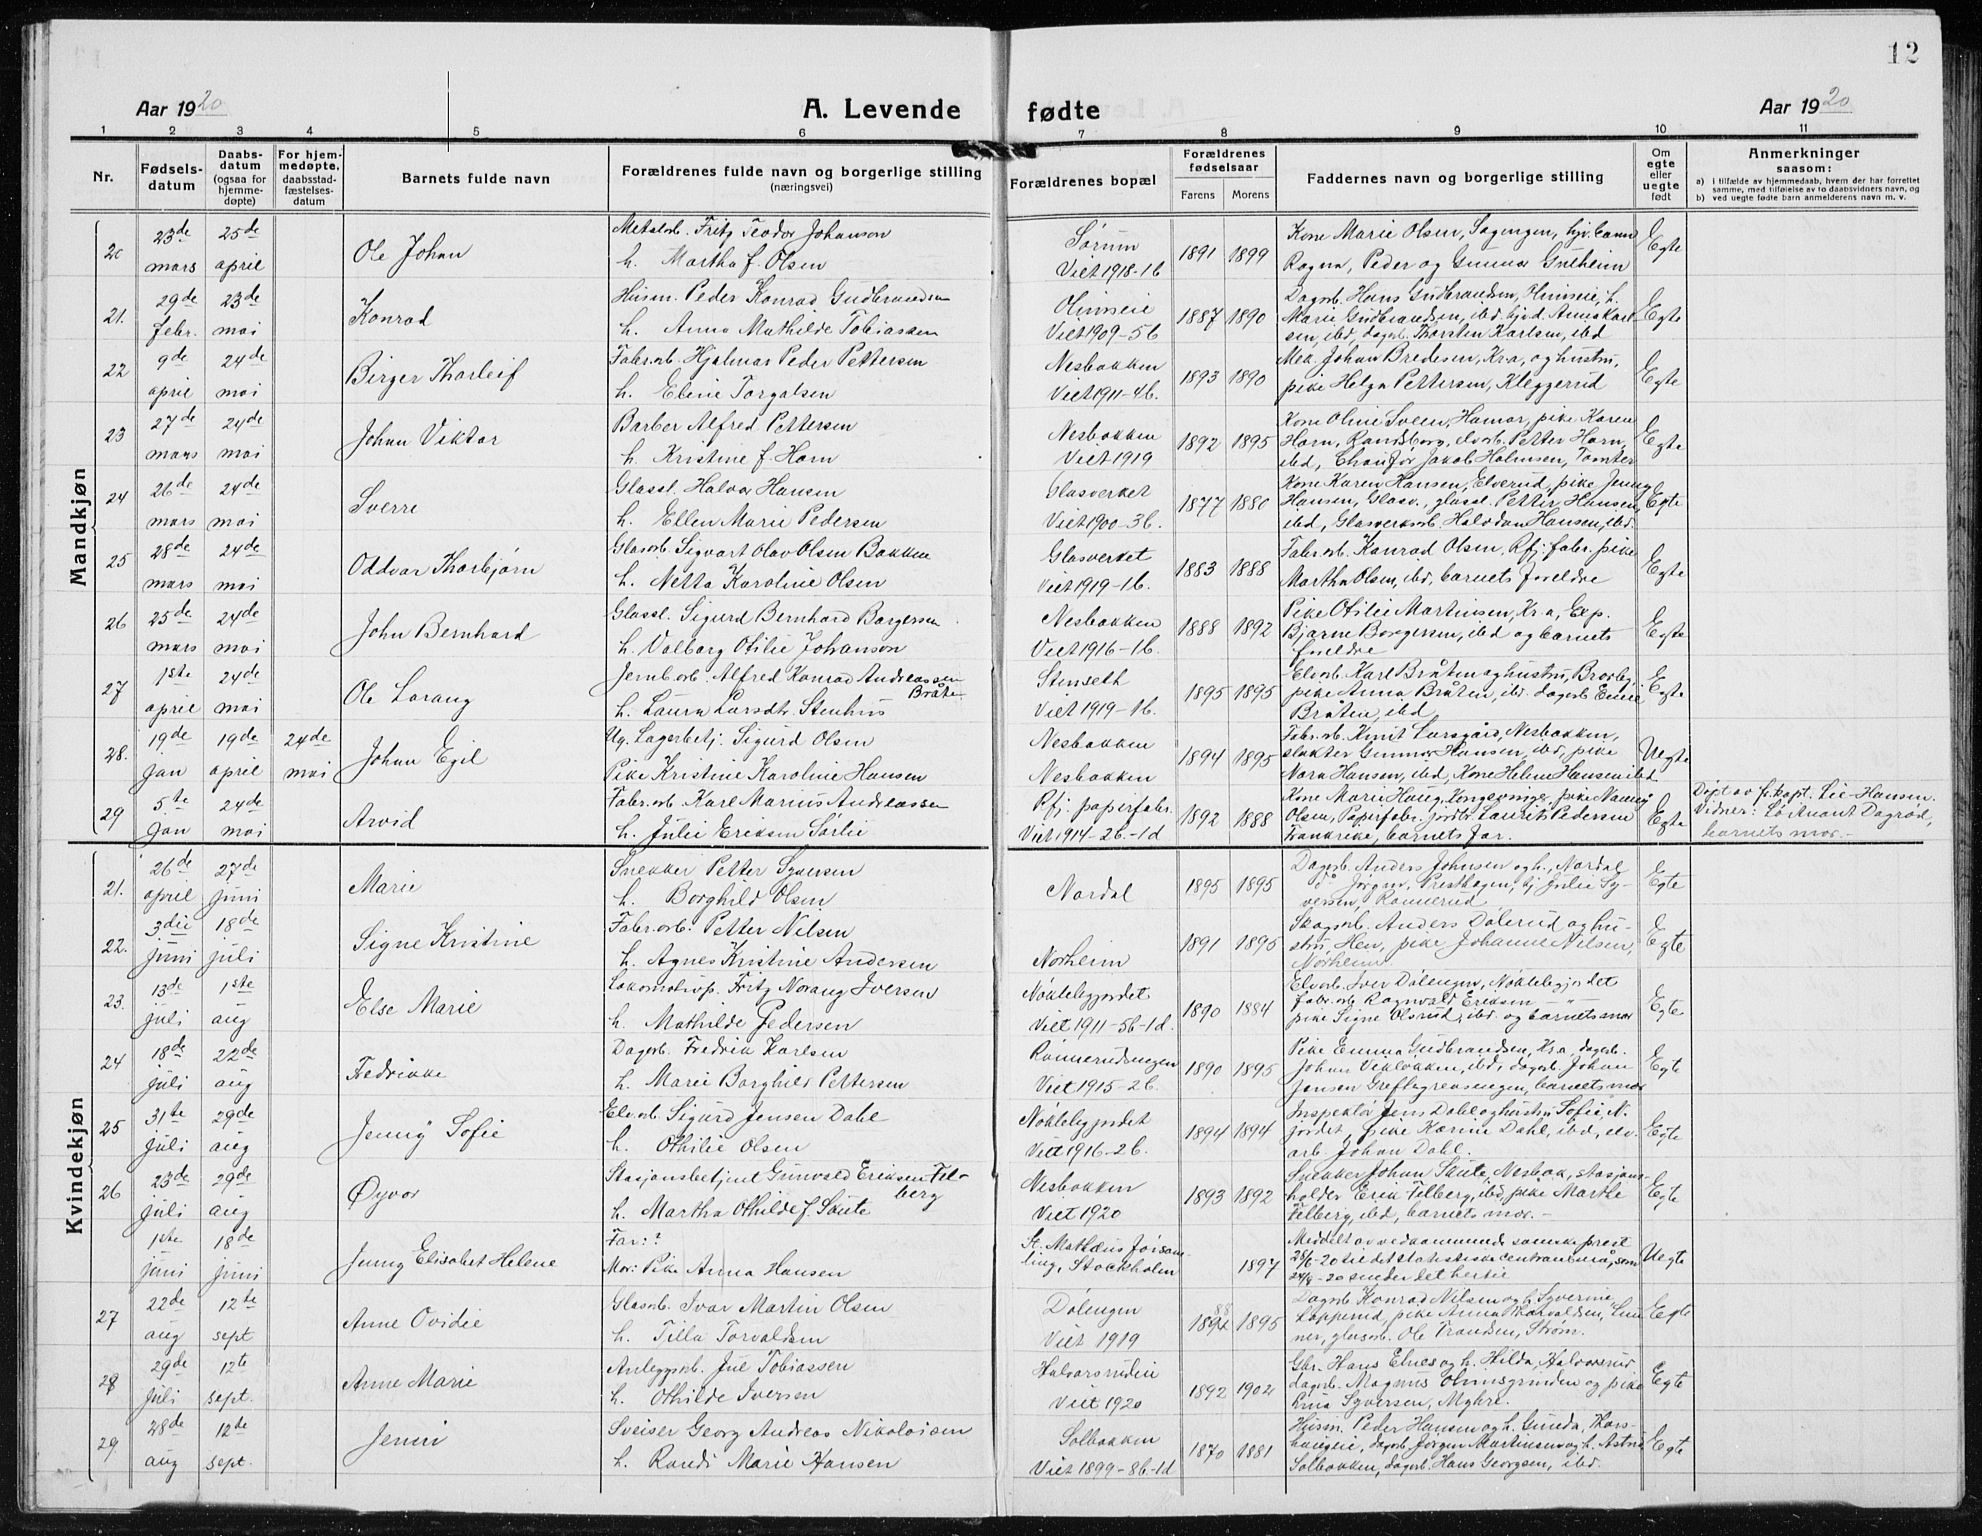 12
Aar 1920
A. Levende
fødte
Aar 1920
1 2 3 4 5 6 7 8 9 10 11
Nr.
Fødsels-
datum
Daabs-
datum
(ogsaa for
hjemme-
døpte)
For hjem-
medøpte,
daabsstad-
fæstelses-
datum
Barnets fulde navn
Forældrenes fulde navn og borgerlige stilling
(næringsvei)
Forældrenes bopæl
Forældrenes
fødselsaar
Farens Morens
Faddernes navn og borgerlige stilling
Om
egte
eller
uegte
født
Anmerkninger
saasom:
a) i tilfælde av hjemmedaab, hvem der har forrettet
samme, med tilføielse av to daabsvidners navn, og
b) ved uegte fødte barn anmelderens navn m. v.
Mandkjøn
20 23de mars 25de april Ole Johan
Metalarb. Fritz Teodor Johanson
h. Martha f. Olsen
Sørum
Viet 1918-1b
1891 1899
Kone Marie Olsen, Sagengen,
Ragna, Peder og Gunnar
Egte
21. 29de febr. 23de mai Konrad
Husm. Peder Konrad Gudbrandsen
h. Anna Mathilde Tobiassen
Viet 1909-5b
1887 1890
Dagarb. Hans Gudbrandsen, h.
Marie Gudbrandsen, ibd. Anna Karl-
sen, ibd, dagarb. Thorsten Karlsen, ibd
Egte
22 9de april 24de mai Birger Thorleif
Fabr.arb. Hjalmar Peder Pettersen
h. Eline Torgalsen
Nesbakken
Viet 1911-4b.
1893 1890
Mek. Johan Bredesen, Kr.a, og hustru,
pike Helga Pettersen, Kleggerud
Egte
23 27de mars 24de mai Johan Viktor
Barber Alfred Pettersen
h. Kristine f. Horn
Nesbakken
Viet 1919
1892 1895
Kone Oline Sveen, Hamar, pike Karen
Horn, Randsborg, elvarb. Petter Horn,
ibd, Chauffør Jakob Holmsen, Tomter
Egte
24 26de mars 24de mai Sverre
Glassl. Halvor Hansen
h. Ellen Marie Pedersen
Glasverket
Viet 1900-3b.
1877 1880
Kone Karen Hansen, Elverud, pike Jenny
Hansen, Glasv., glassl. Petter Hansen,
ibd, Glasverksarb. Halvdan Hansen, ibd.
Egte
25 28de mars 24de mai Oddvar Thorbjørn
Glasarb. Sigvart Olav Olsen Bakken
h. Netta Karoline Olsen
Glasverket
Viet 1919-1b.
1883 1888
Fabr.arb. Konrad Olsen, Rfj. fabr. pike
Martha Olsen, ibd, barnets foreldre
Egte
26 25de mars 24de mai John Bernhard
Glassl. Sigurd Bernhard Borgersen
h. Valborg Otilie Johanson
Nesbakken
Viet 1916-1b.
1888 1892
Pike Otilie Martinsen, Kr.a, Exp.
Bjarne Borgersen, ibd og barnets
foreldre
Egte
27 1ste april 24de mai Ole Lorang
Jernb.arb. Alfred Konrad Andreassen
Bråten
h. Laura Larsdtr. Stenhus
Stenseth
Viet 1919-1b.
1895 1895
Elvarb. Karl Bråten og hustru, Brorby,
pike Anna Bråten, ibd. dagarb.
Bråten, ibd
Egte
28. 19de jan 19de april 24de mai Johan Egil
Ug. Lagerbetj. Sigurd Olsen
Pike Kristine Karoline Hansen
Nesbakken
Nesbakken
1894 1895
Fabr.arb. Knut Larsgård, Nesbakken,
slakter Gunnar Hansen, ibd, pike
Nora Hansen, ibd, Kone Helene Hansen ibd
Uegte
29 5te jan 24de mai Arvid
Fabr.arb. Karl Marius Andreassen
h. Julie Eriksen Sørlie
Rfj. papirfabr.
Viet 1914-2b.-1d
1892 1888
Kone Marie Haug, Kongsvinger, pike Nanny
Olsen, Papirfabr. Laurits Pedersen
Frankrike, barnets far.
Egte
Døpt av fr.kapt. Lie-Hansen.
Vidner: Løitnant Dagrød,
barnets mor.-
Kvindekjøn
21. 26de april 27de juni Marie
Snekker Petter Syversen
h. Borghild Olsen
Nordal
1895 1895
Dagarb. Anders Johnsen og h., Nordal
Jørgen, Presthagen, Julie Sy-
versen, Rønnerud
Egte
22. 3die juni 18de juli Signe Kristine
Fabr.arb. Petter Nilsen
h. Agnes Kristine Andersen
Norheim
1891 1895
Skogsarb. Anders Dølerud og hu-
stru, Hen, pike Johanne Nilsen,
Nørheim
Egte
23. 13de juli 1ste aug Else Marie
Lokomotivp. Fritz Norang Iversen
h. Mathilde Pedersen
Nøklebyjordet
Viet 1911-5b-1d.
1890 1884
Elvarb. Iver Dølengen, Nøklebyjordet
fabr.arb. Ragnvald Eriksen -"-
pike Signe Olsrud, ibd. og barnets mor
Egte
24 18de juli 22de aug Fredrikke
Dagarb. Fredrik Karlsen
h. Marie Borghild Pettersen
Rønnerudsengen
Viet 1915-2b.
1890 1895
Pike Emma Gudbrandsen, Kr.a, dagarb.
Johan Vikløkken, ibd, dagarb. Johan
Jensen barnets mor
Egte
25 31te juli 29de aug Jenny Sofie
Elvarb. Sigurd Jensen Dahl
h. Othilie Olsen
Nøklebyjordet
Viet 1916-2b.
1894 1894
Inspektør Jens Dahl og hustru Sofie N.
jordet, pike Karine Dahl, ibd, elv-
arb Johan Dahl.
Egte
26 23de juli 29de aug Øyvor
Stasjonsbetjent Gunvald Eriksen Fel-
berg
h. Martha Othilde f. Skute
Nesbakken
Viet 1920
1893 1892
Snekker Johan Skute, Nesbak, stasjons-
holder Erik Felberg, ibd, pike Marthe
Felberg, ibd, barnets mor.-
Egte
1ste juni 18de juni Jenny Elisabet Helene
Far: ?
Mor: Pike Anna Hansen
St. Mattæus Førsam-
ling, Stockholm
1897
Meddelt av vedkommende svenske prest
28/6-20 til det statistiske centralbyrå, som
24/8-20 sender det hertil
Uegte
27 22de aug 12te sept Anne Ovidie
Glasarb. Ivar Martin Olsen
h. Tilla Torvaldsen
Dølengen
Viet 1919
1895
Dagarb Konrad Nilsen og h. Syverine,
Lopperud, pike Anna Thorvaldsen, Lun-
ner, glasarb. Ole Trondsen, Strøm.
Egte
28 29de juli 12te sept. Anne Marie
Anleggsarb. Jul Tobiassen
h. Othilde Iversen
Halvorsrudeie
Viet 1920
1892 1902
Gbr. Hans Elnes og h. Hilda, Halvorsrud
dagarb. Magnus og pike
Lina Syversen, Myhre.
Egte
29 28de aug 12te sept. Jenni
Sveiser Georg Andreas Nikolaisen
h. Randi Marie Hansen
Solbakken
Viet 1899-8b-1d
1870 1881
Husm. Peder Hansen og h. Gunda, Thors-
haugeie, dagarb. Jørgen Martinsen og h. Astrid
Solbakken, dagarb. Hans Georgsen, ibd.
Egte